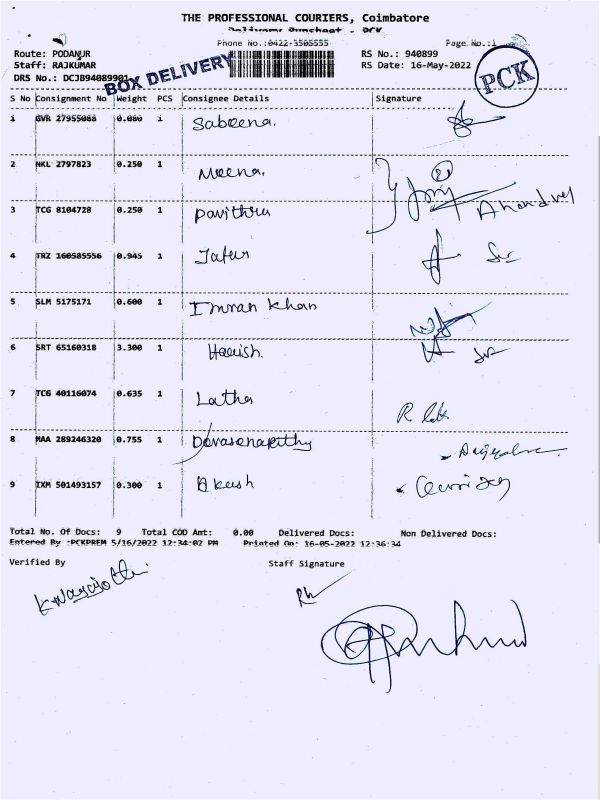 THE PROFESSIONAL COURIERS, Coimbatore
Phone No.:0422-3505555 Page No.:1
Route: PODANUR RS No.: 940899
Staff: RAJKUMAR RS Date: 16-May-2022
DRS No.: DCJB94089901
BOX DELIVERY
PCK
S No Consignment No Weight PCS Consignee Details Signature
1 GVR 27955088 0.080 1 Sabeena.
2 NKL 2797823 0.250 1 Meena.
3 TCG 8104728 0.250 1 Pavithra
4 TRZ 160585556 0.945 1
5 SLM 5175171 0.600 1 Imran Khan
6 SRT 65160318 3.300 1 Harish.
7 TCG 40116074 0.635 1 Latha
8 MAA 289246320 0.755 1
9 IXM 501493157 0.300 1 Akash
Total No. Of Docs: 9 Total COD Amt: 0.00 Delivered Docs: Non Delivered Docs:
Entered By :PCKPREM 5/16/2022 12:34:02 PM Printed On: 16-05-2022 12:36:34
Verified By Staff Signature